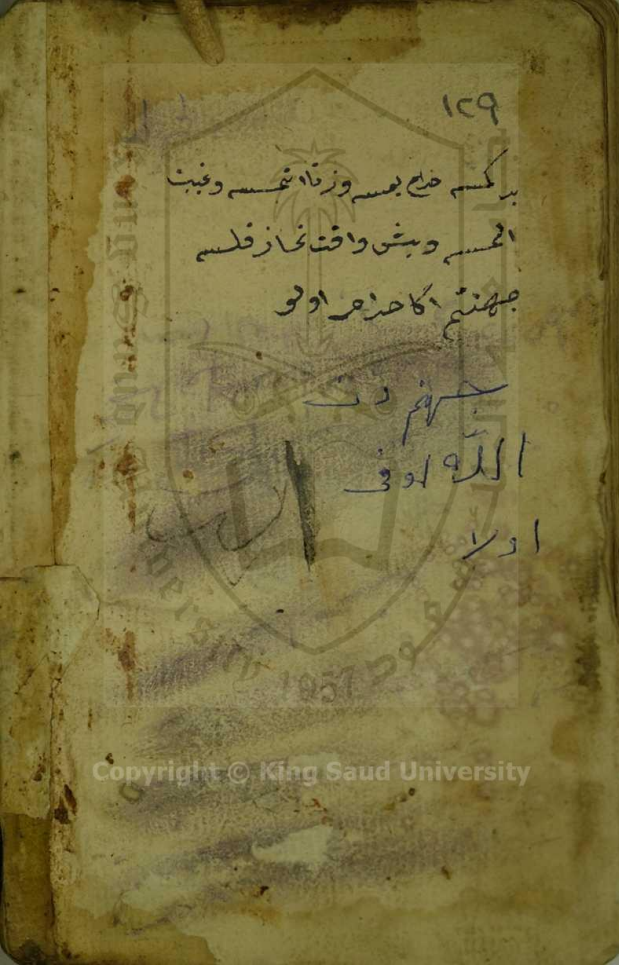 ١٢٩
بر كمسه حرام يمسه و زنا اتمسه و غيبت
اتمسه و بش واقت نماز قلسه
جهنم اكا حرام اولو
جهنم دن
الله اونى
اولا
Copyright © King Saud University
1957